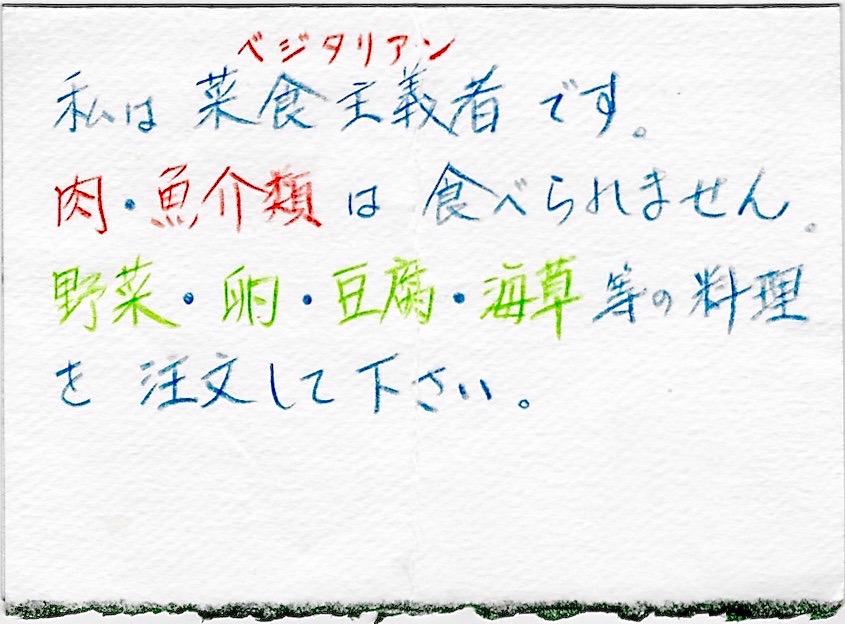 ベジタリアン
私は 菜食主義者 です。
肉・魚介類 は 食べられません。
野菜・卵・豆腐・海草 等の 料理
を 注文して 下さい。